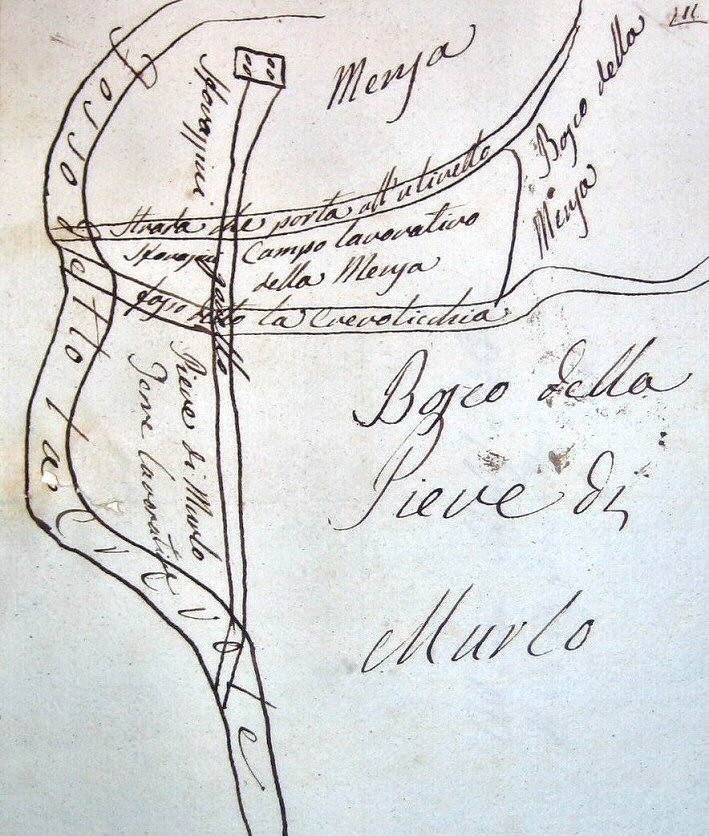 Mensa
Bosco della
Mensa
Fosso detto la Crevole
Sforazzini
Strada che porta all'uliveto
Campo lavorativo
della Mensa
fosso detto la Crevolicchia
Pieve di Murlo
Terre lavorative
Bosco della
Pieve di
Murlo